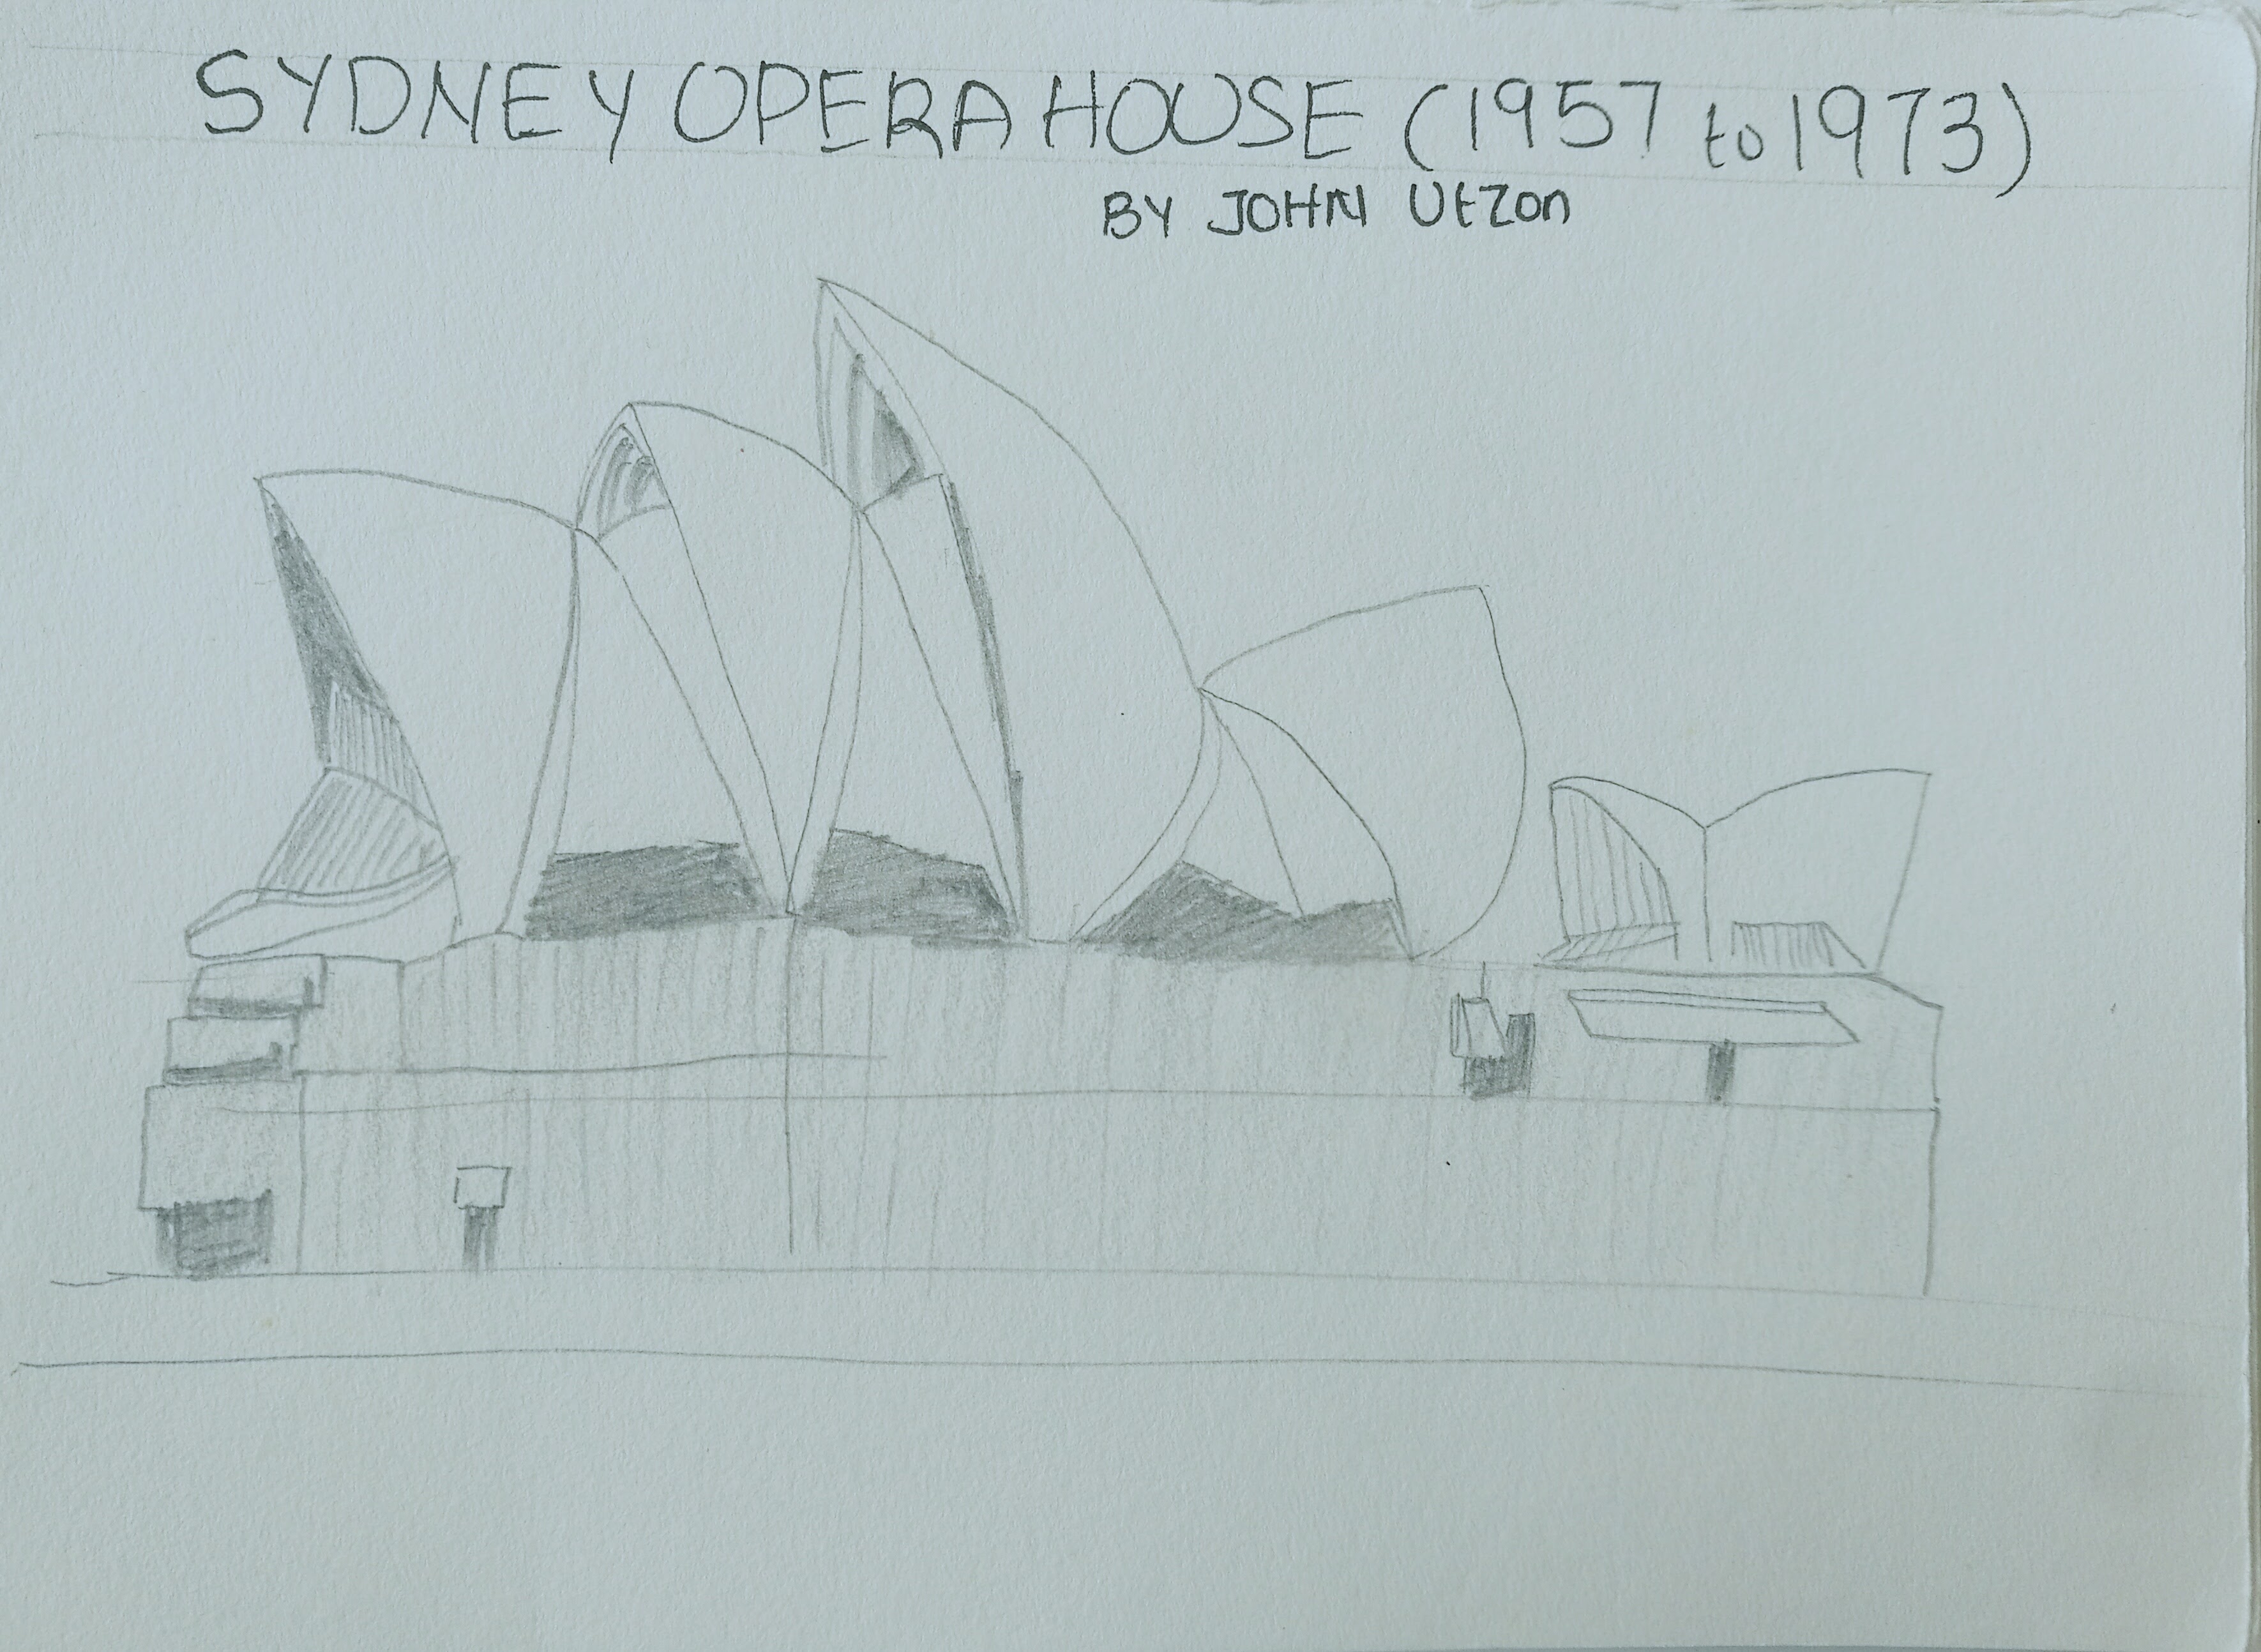 SYDNEY OPERA HOUSE (1957 to 1973)
BY JOHN UtZon